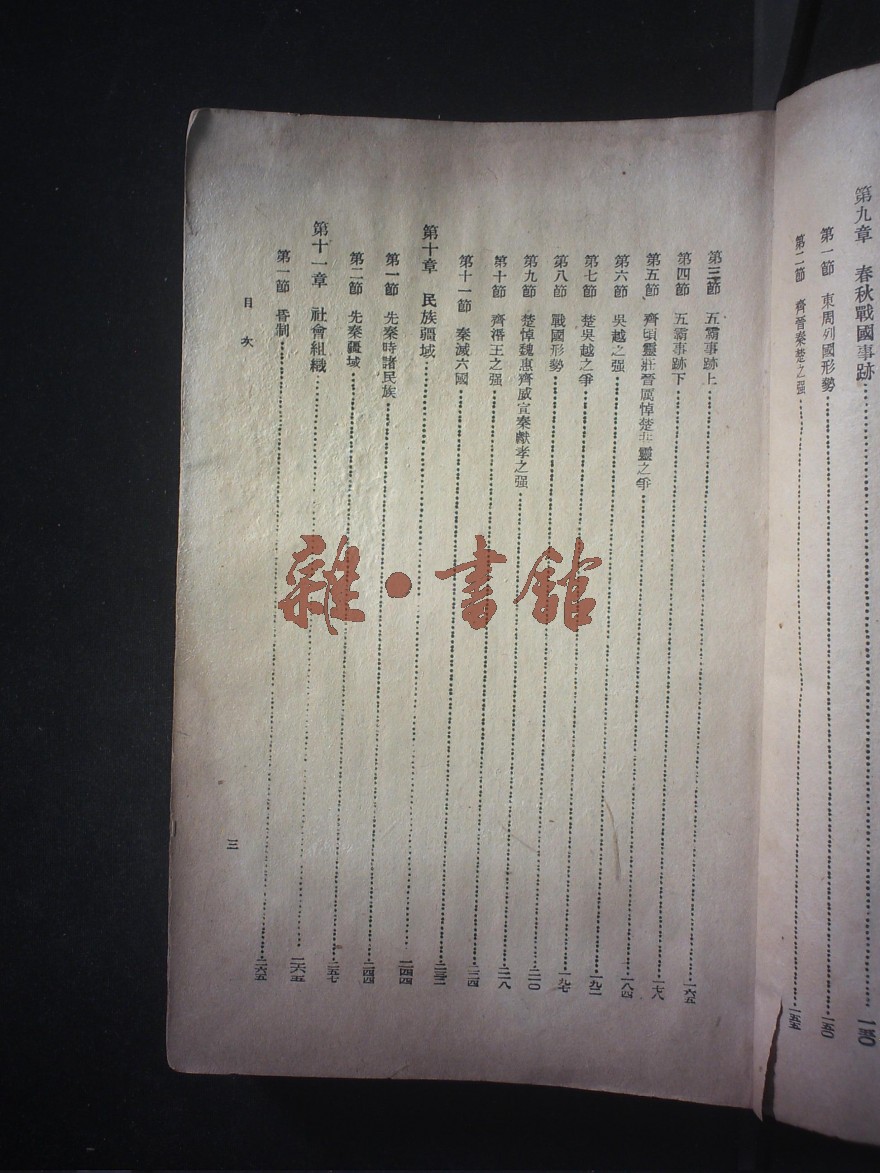 第九章 春秋戰國事跡……一五〇
第一節 東周列國形勢……一五〇
第二節 齊晉秦楚之强……一五五
第三節 五霸事跡上……一六五
第四節 五霸事跡下……一七八
第五節 齊頃靈莊晉厲悼楚共靈之爭……一八四
第六節 吳越之强……一九二
第七節 楚吳越之爭……一九七
第八節 戰國形勢……二一〇
第九節 楚悼魏惠齊威宣秦獻孝之强……二一八
第十節 齊湣王之强……二二四
第十一節 秦滅六國……
第十章 民族疆域……二四四
第一節 先秦時諸民族……二四四
第二節 先秦疆域……二五七
第十一章 社會組織……二六五
第一節 昏制……二六五
目次
三
雜·書館